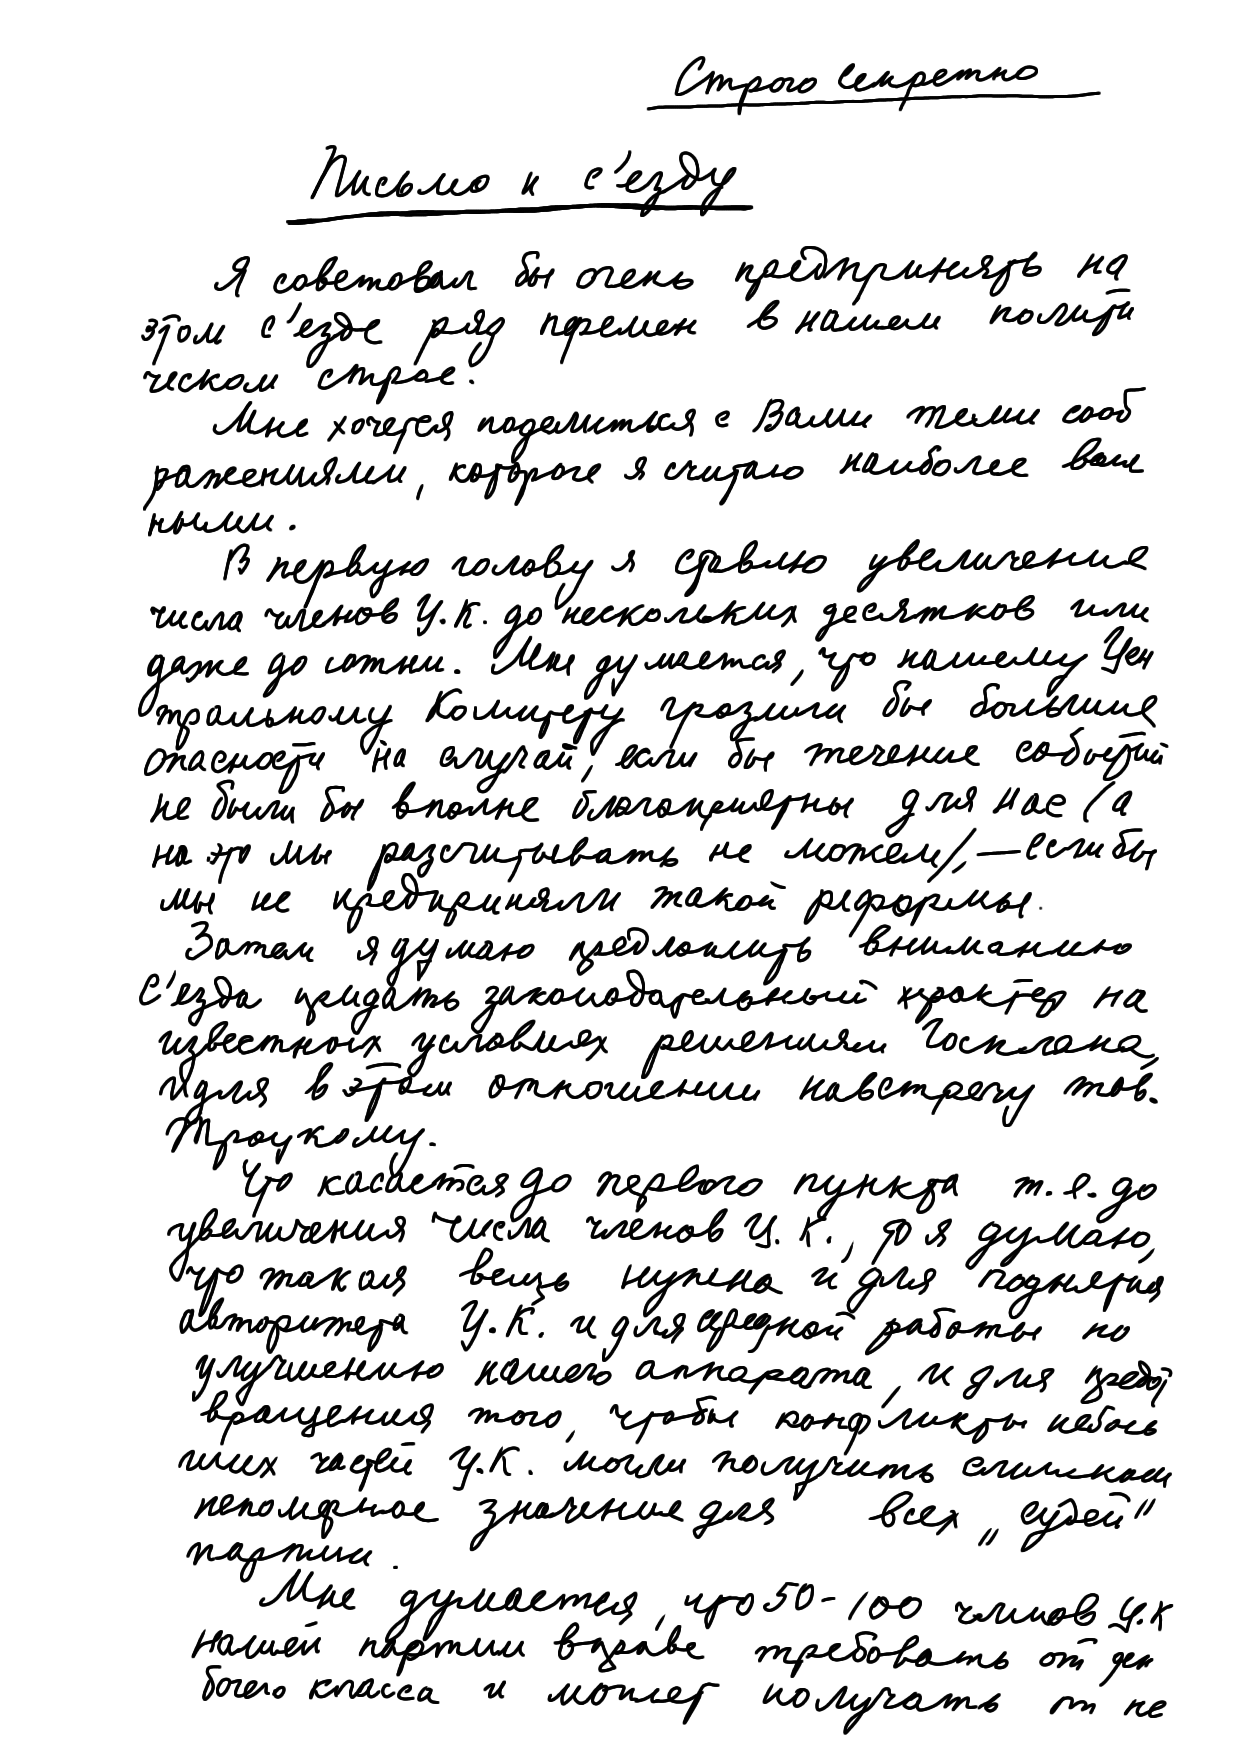 Строго секретно
Письмо к с'езду
Я советовал бы очень предпринять на
этом с'езде ряд перемен в нашем полити
ческом строе.
Мне хочется поделиться с Вами теми сооб
ражениями, которые я считаю наиболее важ
ными.
В первую голову я ставлю увеличение
числа членов Ц.К. до нескольких десятков или
даже до сотни. Мне думается, что нашему Цен
тральному Комитету грозили бы большие
опасности на случай, если бы течение событий
не были бы вполне благоприятны для нас (а
на это мы разсчитывать не можем/, — если бы
мы не предприняли такой реформы.
Затем я думаю предложить вниманию
с'езда придать законодательный характер на
известных условиях решениям Госплана,
идя в этом отношении навстречу тов.
Троцкому.
Что касается до первого пункта т.е. до
увеличения числа членов Ц.К., то я думаю,
что такая вещь нужна и для поднятия
авторитета Ц.К. и для работы по
улучшению нашего аппарата, и для предот
вращения того, чтобы конфликты небольь
ших частей Ц.К. могли получить слишком
непомерное значение для всех „судей"
партии.
Мне думается, что 50-100 членов Ц.К
нашей партии вправе требовать от
бочего класса и может получать от не